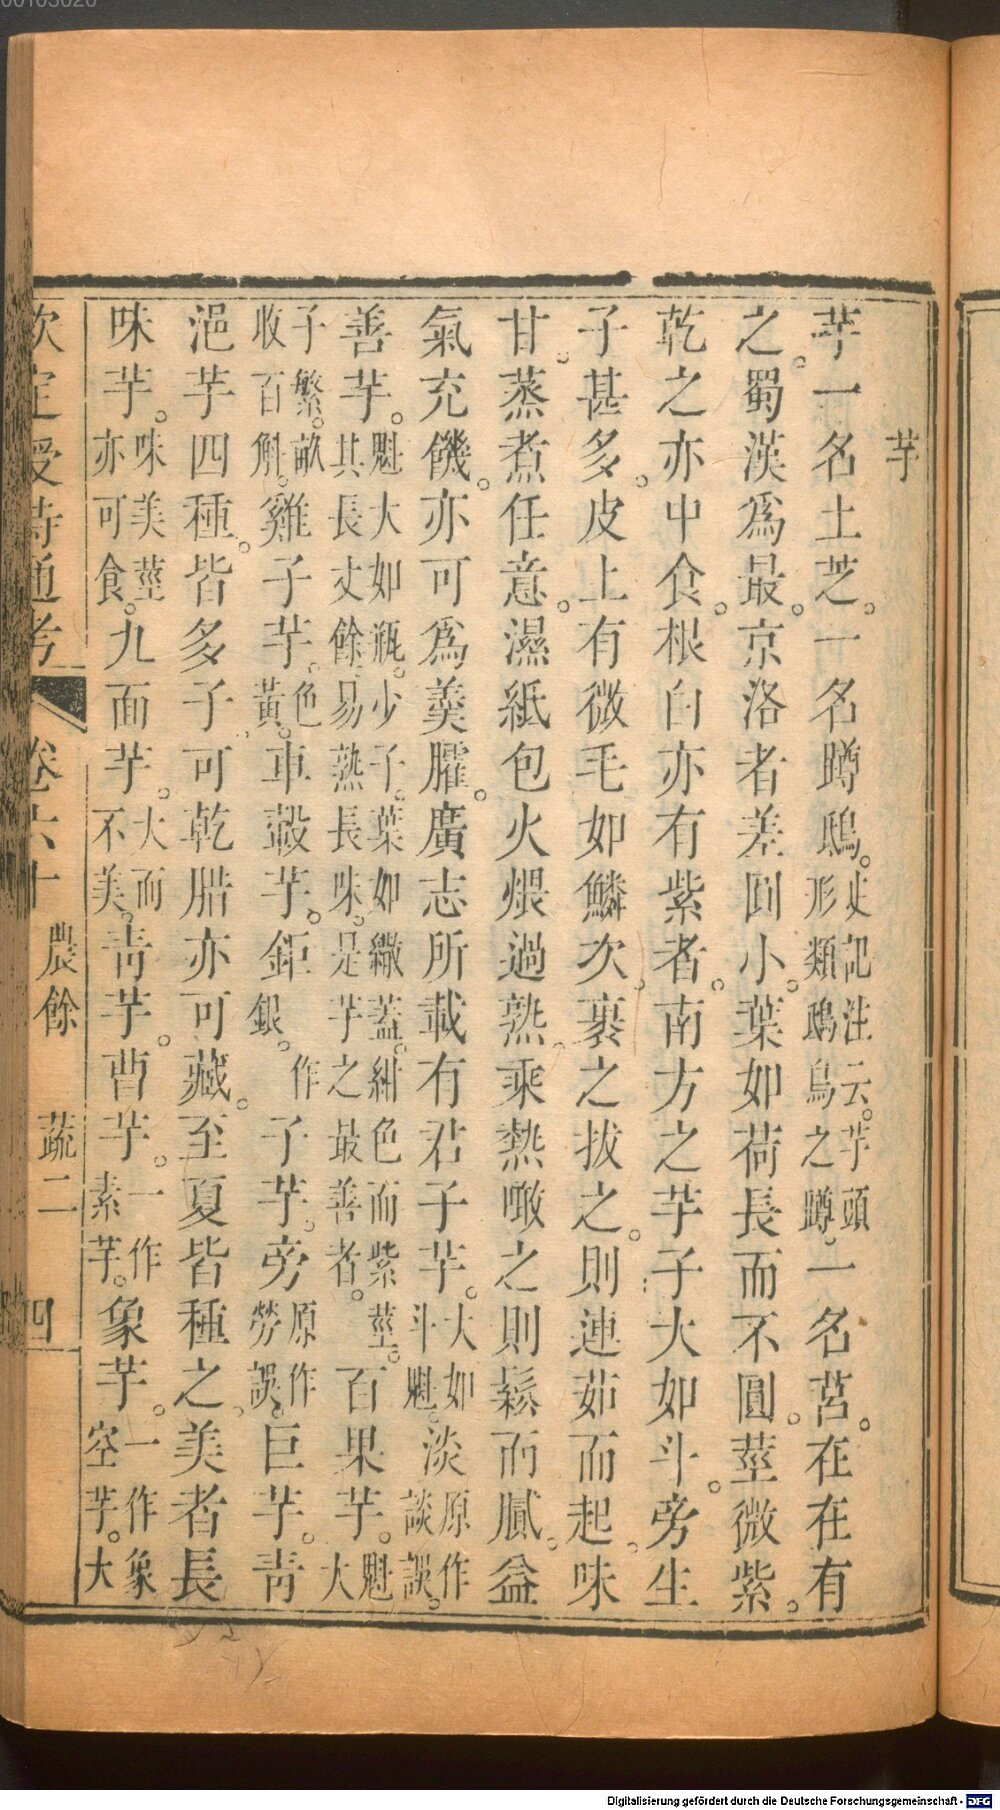 芋
芋一名土芝。一名蹲鴟。史記注云。芋頭形類鴟鳥之蹲。一名莒。在在有
之。蜀漢爲最。京洛者差圓小。葉如荷長而不圓。莖微紫。
乾之亦中食。根白亦有紫者。南方之芋子大如斗。旁生
子甚多。皮上有微毛如鱗次。裹之拔之。則連茹而起。味
甘。蒸煮任意。濕紙包火煨過熟。乘熱噉之則鬆而膩。益
氣充饑。亦可爲羹臛。廣志所載有君子芋。大如斗魁。淡原作談誤。
善芋。魁大如瓶。少子。葉如繖蓋。紺色而紫莖。其長丈餘。易熟長味。是芋之最善者。百果芋。魁大
子繁。畝收百斛。雞子芋。色黃。車轂芋。鉅作銀。子芋。旁原作勞誤。巨芋。靑
浥芋四種。皆多子可乾腊亦可藏。至夏皆種之。美者長
味芋。味美莖亦可食。九面芋。大而不美。靑芋。曹芋。一作素芋。象芋。一作象空芋。大
欽定授時通考 卷六十 農餘 蔬二 四
00103020
Digitalisierung gefördert durch die Deutsche Forschungsgemeinschaft - DFG